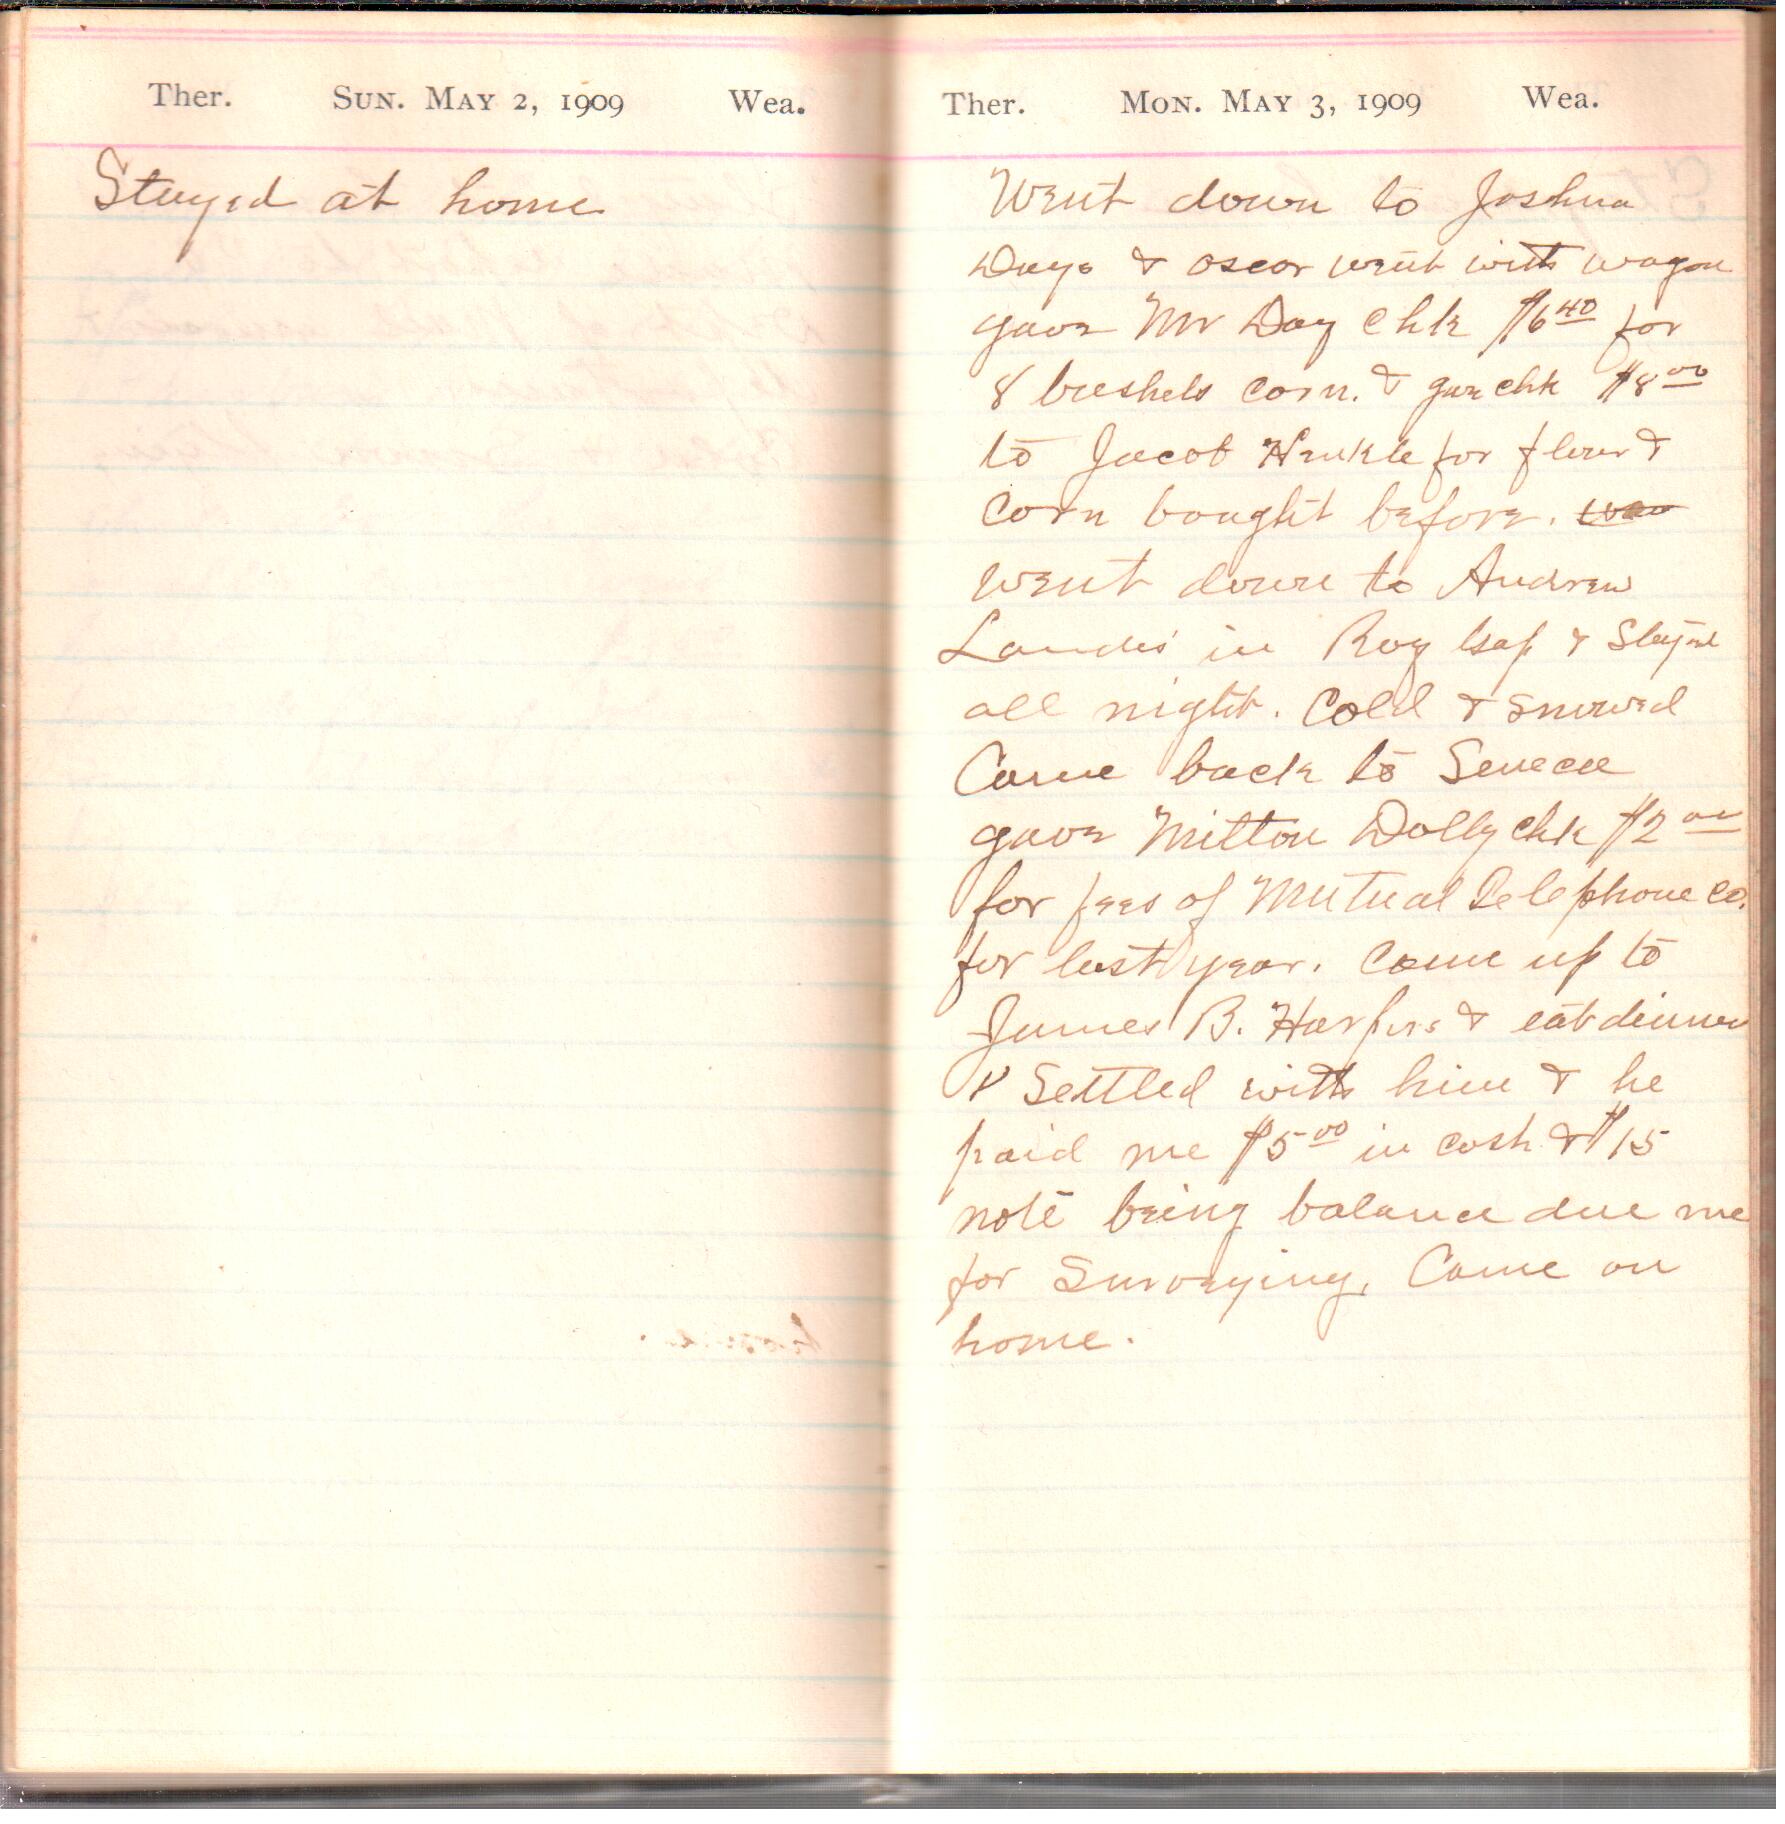 Ther. Sun. May 2, 1909 Wea.
Stayed at home
Ther. Mon. May 3, 1909 Wea.
Went down to Joshua
Days & Oscar went with wagon
gave Mr Day chk $6 40 for
8 bushels corn. & gave chk $8 00
to Jacob Henkle for flour &
corn bought before.
went down to Andrew
Landis' in Roy Gap & Stayed
all night. Cold & snowed
Came back to Seneca
gave Milton Dolly chk $2 00
for fees of Mutual Telephone Co.
for last year. Come up to
James B. Harpers & eat dinner
& Settled with him & he
paid me $5 00 in cash & $15
note being balance due me
for Surveying, Came on
home.